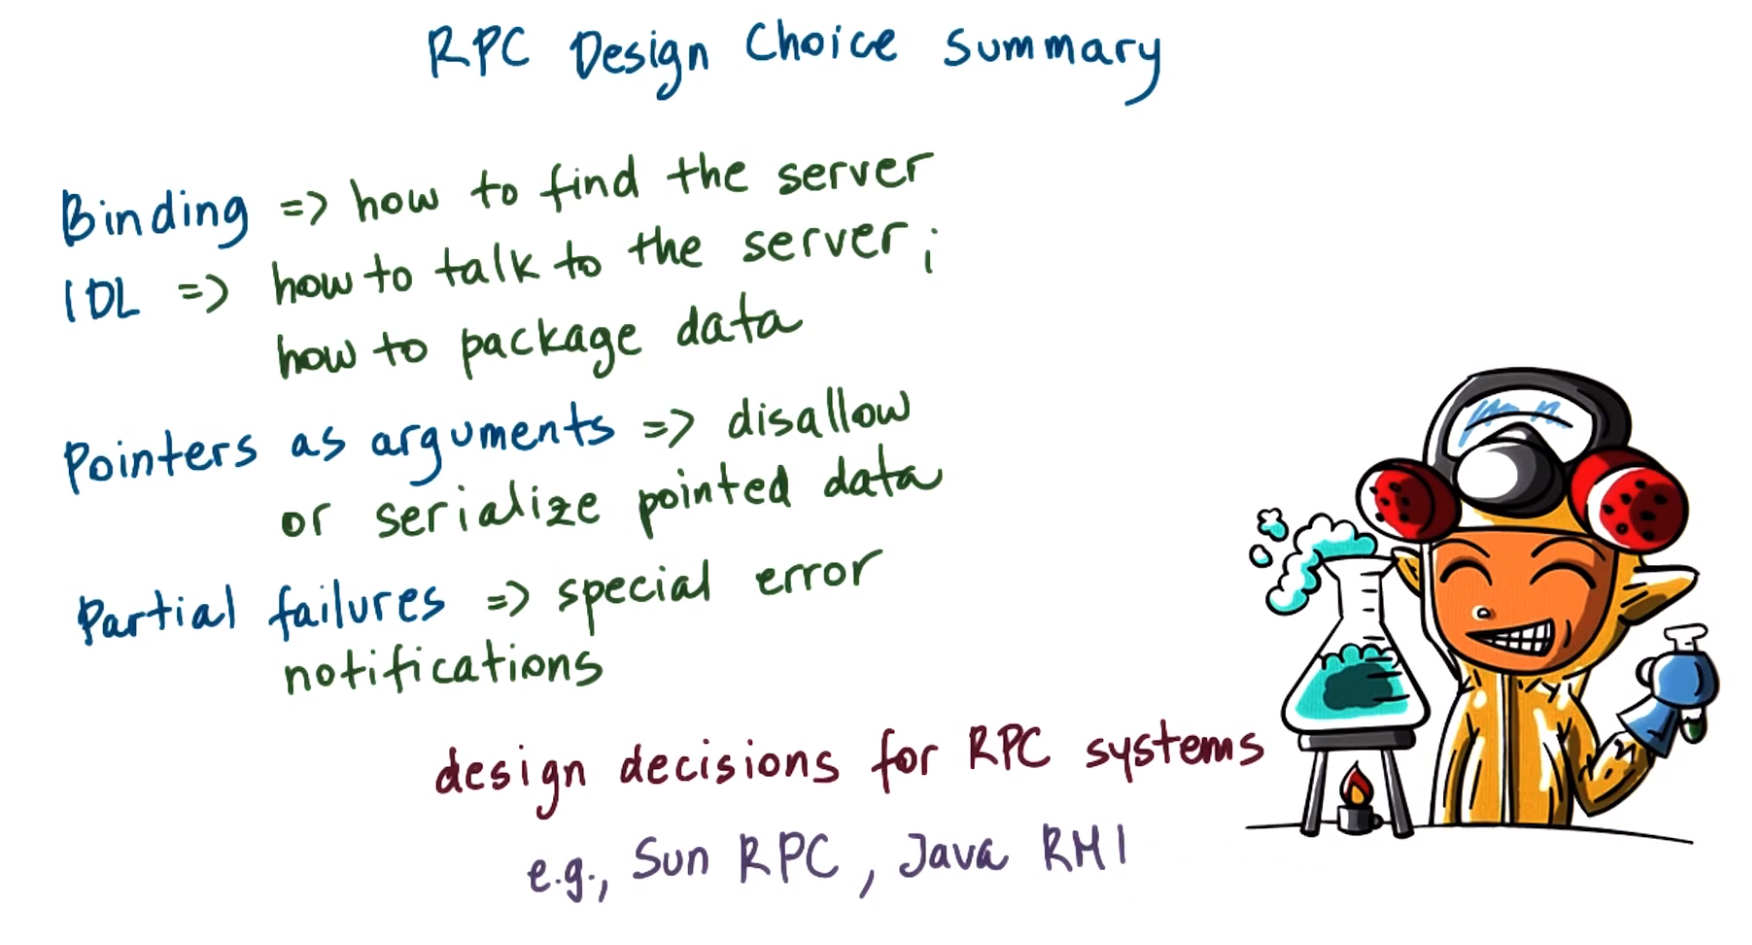 RPC Design Choice Summary
Binding => how to find the server
IDL => how to talk to the server;
how to package data
Pointers as arguments => disallow
or serialize pointed data
Partial failures => special error
notifications
design decisions for RPC systems
e.g., Sun RPC, Java RMI